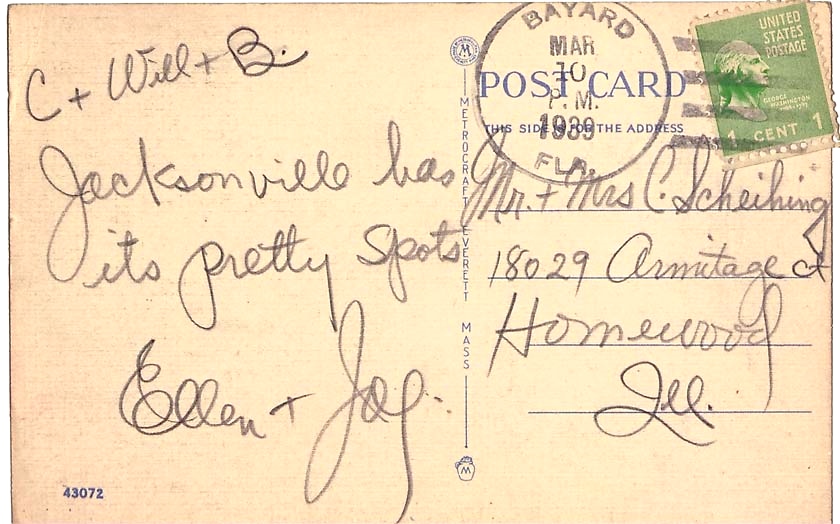 C + Will + B.
Jacksonville has
its pretty spots
Ellen + Jay.
43072
METROCRAFT EVERETT MASS
BAYARD
MAR
10
P.M.
1939
FLA.
POST CARD
THIS SIDE IS FOR THE ADDRESS
UNITED
STATES
POSTAGE
GEORGE
WASHINGTON
1 CENT 1
Mr. + Mrs C. Scheihing
18029 Armitage ct
Homewood
Ill.